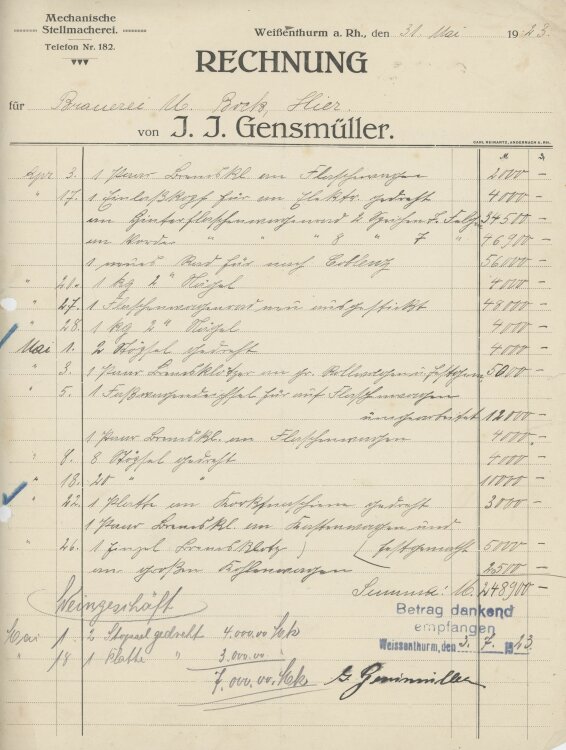 Mechanische
Stellmacherei.
Telefon Nr. 182.
Weißenthurm a. Rh., den 31. Mai 1923.
RECHNUNG
für Brauerei M. Bock, Hier.
von J. J. Gensmüller.
CARL REINARTZ, ANDERNACH A. RH.
M ₰
Apr. 3. 1 Paar Bremskl. an Flaschenwagen 2000 –
" 17. 1 Einlaßkopf für an Elektr. gedreht 4000 –
an Hinterflaschenwagenrad 2 Speichen 34500 –
an Vorder " " " 8 " 7 " 46900 –
1 neues Rad für nach Coblenz 56000 –
" 21. 1 kg 2" Nägel 4000 –
" 27. 1 Flaschenwagenrad neu ausgestickt 48000 –
" 28. 1 kg 2" Nägel 4000 –
Mai 1. 2 Stopsel gedreht 4000 –
" 3. 1 Paar Bremsklötzer an gr. Rollwagen 5000 –
" 5. 1 Faßwagendeichsel für auf Flaschenwagen
umgearbeitet 12000 –
1 Paar Bremskl. an Flaschenwagen 4000 –
" 8. 8 Stopsel gedreht 4000 –
" 18. 20 " " 10000 –
" 22. 1 Platte an Korkmaschiene gedreht 3000 –
1 Paar Bremskl. an Kastenwagen und
" 26. 1 Einzel Bremsklotz ) ( festgemacht 5000 –
an großen Kohlenwagen 2500 –
Summa: M. 248900 –
Weingeschäft
Betrag dankend
empfangen
Weissenthurm, den 3. 7. 1923
Mai 1. 2 Stopsel gedreht 4.000.00 Mk
" 18 1 Platte " 3.000.00 "
7.000.00 Mk